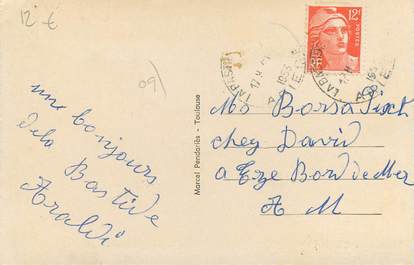 12 €
09
une bonjours
dela
Bastide
Araldi
Marcel Pendariès - Toulouse
12F
POSTES
RF
LA BASTIDE
17 H
1955
ARIEGE
Ms Borsa
chez David
a Eze Bord de Mer
A M